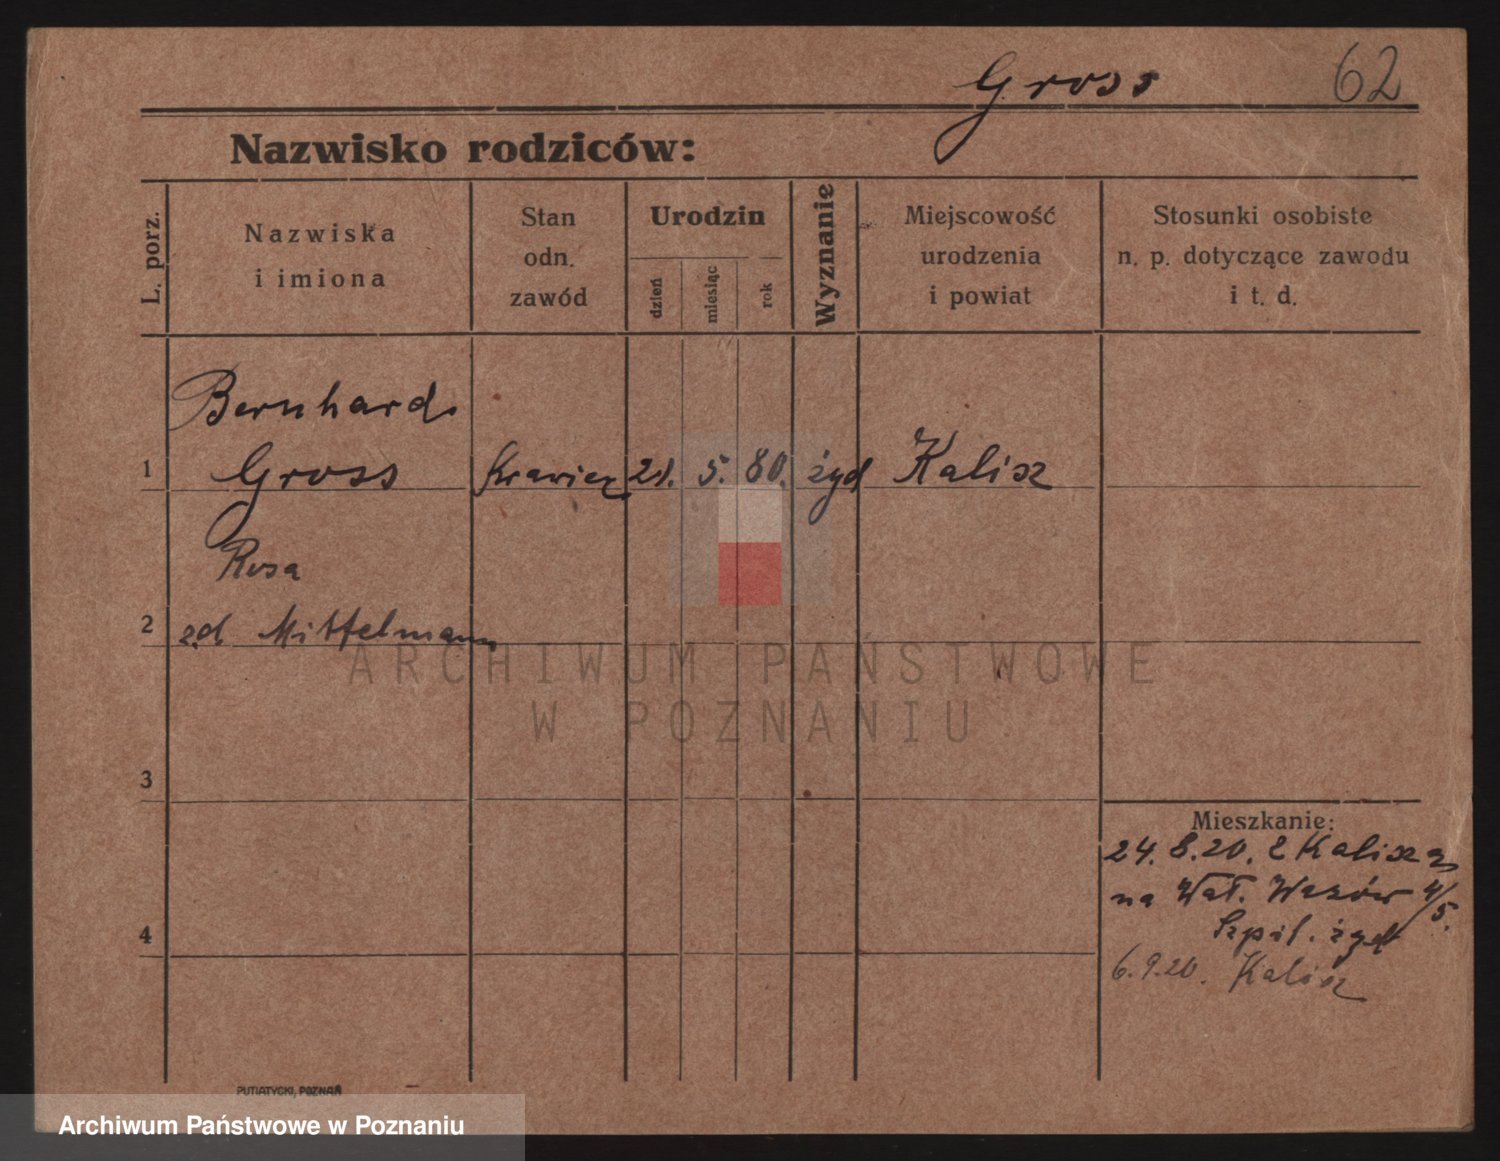 Gross 62
Nazwisko rodziców:
L. porz.
Nazwiska
i imiona
Stan
odn.
zawód
Urodzin
dzień
miesiąc
rok
Wyznanie
Miejscowość
urodzenia
i powiat
Stosunki osobiste
n. p. dotyczące zawodu
i t. d.
Bernhard
1 Gross krawiec 21. 5. 80. żyd Kalisz
Rosa
2 zd. Mittelmann
3
4
Mieszkanie:
24. 8. 20. z Kalisza
na Wał. Wazów 4/5.
Szpit. żyd
6.9.20. Kalisz
PUTIATYCKI, POZNAŃ
ARCHIWUM PAŃSTWOWE
W POZNANIU
Archiwum Państwowe w Poznaniu